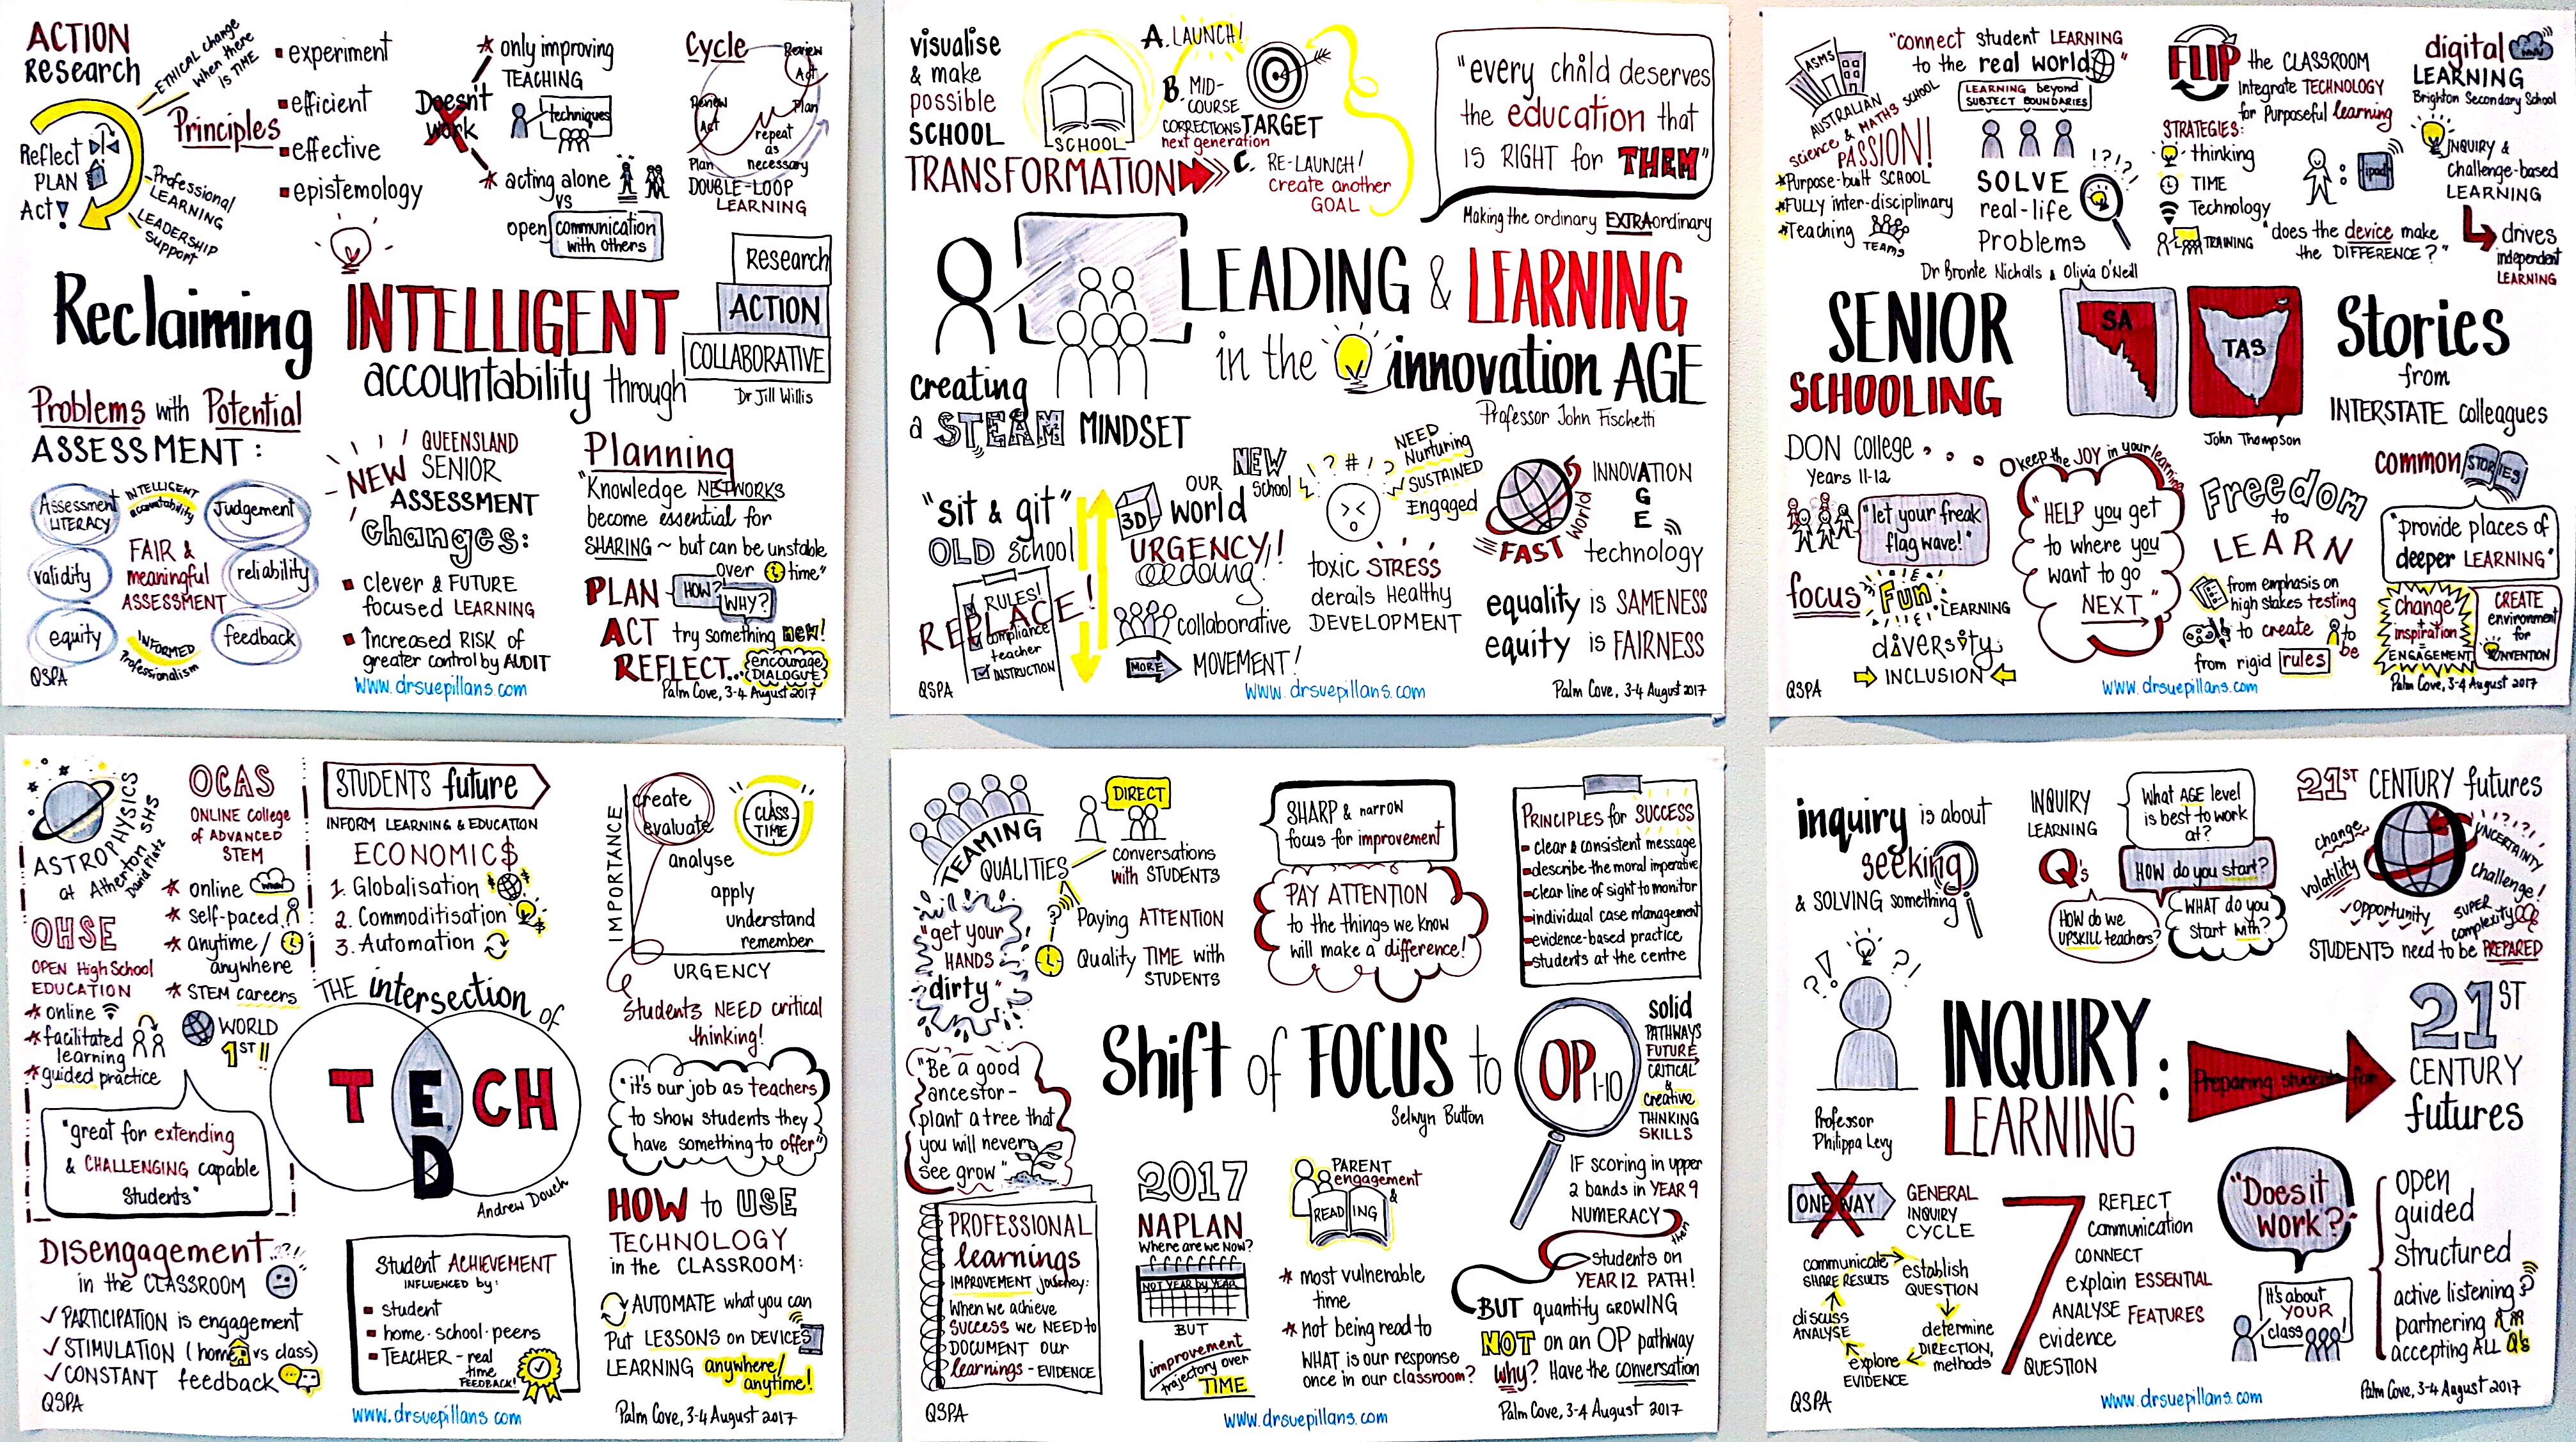 ACTION
Research
ETHICAL change
when there
is TIME
Reflect
PLAN
Act
Professional
LEARNING
LEADERSHIP
Support
Principles
experiment
efficient
effective
epistemology
Doesn't
work
only improving
TEACHING
techniques
acting alone
vs
open communication
with others
Cycle
Review
Act
Plan
Review
Act
Plan
repeat
as
necessary
DOUBLE-LOOP
LEARNING
Reclaiming INTELLIGENT
accountability through
Research
ACTION
COLLABORATIVE
Dr Jill Willis
Problems with Potential
ASSESSMENT:
Assessment
LITERACY
INTELLIGENT
accountability
Judgement
validity
FAIR &
meaningful
ASSESSMENT
reliability
equity
INFORMED
Professionalism
feedback
NEW
QUEENSLAND
SENIOR
ASSESSMENT
changes:
clever & FUTURE
focused LEARNING
Increased RISK of
greater control by AUDIT
Planning
"Knowledge NETWORKS
become essential for
SHARING ~ but can be unstable
over time"
PLAN HOW? WHY?
ACT try something new!
REFLECT... encourage
DIALOGUE
QSPA
www.drsuepillans.com
Palm Cove, 3-4 August 2017
visualise
& make
possible
SCHOOL
TRANSFORMATION
SCHOOL
A. LAUNCH!
B. MID-
COURSE
CORRECTIONS
next generation
TARGET
C. RE-LAUNCH!
create another
GOAL
"every child deserves
the education that
is RIGHT for THEM"
Making the ordinary EXTRAordinary
LEADING & LEARNING
in the innovation AGE
Professor John Fischetti
creating
a STEAM MINDSET
"sit & git"
OLD school
RULES!
REPLACE!
compliance
teacher
INSTRUCTION
OUR
3D world
NEW
School
URGENCY!
doing!
collaborative
MORE MOVEMENT!
NEED
Nurturing
SUSTAINED
Engaged
toxic STRESS
derails Healthy
DEVELOPMENT
FAST
World
INNOVATION
AGE
technology
equality is SAMENESS
equity is FAIRNESS
QSPA
www.drsuepillans.com
Palm Cove, 3-4 August 2017
ASMS
AUSTRALIAN
science & MATHS SCHOOL
PASSION!
Purpose-built SCHOOL
FULLY inter-disciplinary
Teaching TEAMS
"connect student LEARNING
to the real world"
LEARNING beyond
SUBJECT BOUNDARIES
SOLVE
real-life
Problems
Dr Bronte Nicholls & Olivia O'Neill
FLIP the CLASSROOM
Integrate TECHNOLOGY
for Purposeful learning
STRATEGIES:
thinking
TIME
Technology
TRAINING
ipad
"does the device make
the DIFFERENCE?"
digital
LEARNING
Brighton Secondary School
INQUIRY &
challenge-based
LEARNING
drives
independent
LEARNING
SENIOR
SCHOOLING
SA
TAS
John Thompson
Stories
from
INTERSTATE colleagues
DON college
Years 11-12
"let your freak
flag wave!"
focus Fun LEARNING
diversity
INCLUSION
keep the JOY in your learning
"HELP you get
to where you
want to go
NEXT"
Freedom
to
LEARN
from emphasis on
high stakes testing
to create
to be
from rigid rules
common STORIES
"provide places of
deeper LEARNING"
change
+
inspiration
=
ENGAGEMENT
CREATE
environment
for
INVENTION
QSPA
www.drsuepillans.com
Palm Cove, 3-4 August 2017
ASTROPHYSICS
at Atherton SHS
David Platz
OCAS
ONLINE College
of ADVANCED
STEM
online WWW
self-paced
anytime/
anywhere
STEM careers
WORLD
1ST!!
OHSE
OPEN High School
EDUCATION
online
facilitated
learning
guided practice
"great for extending
& CHALLENGING capable
Students"
STUDENTS future
INFORM LEARNING & EDUCATION
ECONOMIC$
1. Globalisation
2. Commoditisation
3. Automation
THE intersection of
TECH
ED
Andrew Douch
IMPORTANCE
create
evaluate
analyse
apply
understand
remember
URGENCY
CLASS
TIME
Students NEED critical
thinking!
"it's our job as teachers
to show students they
have something to offer"
Disengagement
in the CLASSROOM
PARTICIPATION is engagement
STIMULATION (home vs class)
CONSTANT feedback
Student ACHIEVEMENT
INFLUENCED by:
student
home·school·peers
TEACHER - real
time
FEEDBACK!
HOW to USE
TECHNOLOGY
in the CLASSROOM:
AUTOMATE what you can
Put LESSONS on DEVICES
LEARNING anywhere/
anytime!
QSPA
www.drsuepillans.com
Palm Cove, 3-4 August 2017
TEAMING
QUALITIES
DIRECT
conversations
with STUDENTS
Paying ATTENTION
Quality TIME with
STUDENTS
"get your
HANDS
dirty"
SHARP & narrow
focus for improvement
PAY ATTENTION
to the things we know
will make a difference!
PRINCIPLES for SUCCESS
clear & consistent message
describe the moral imperative
clear line of sight to monitor
individual case management
evidence-based practice
students at the centre
"Be a good
ancestor-
plant a tree that
you will never
see grow"
Shift of FOCUS to OP 1-10
Selwyn Button
solid
PATHWAYS
FUTURE
CRITICAL
&
creative
THINKING
SKILLS
PROFESSIONAL
learnings
IMPROVEMENT journey:
When we achieve
success we NEED to
DOCUMENT our
learnings - EVIDENCE
2017
NAPLAN
Where are we Now?
NOT YEAR by YEAR
BUT
improvement
trajectory over
TIME
PARENT
engagement
&
READING
most vulnerable
time
not being read to
WHAT is our response
once in our classroom?
IF scoring in upper
2 bands in YEAR 9
NUMERACY
then
students on
YEAR 12 PATH!
BUT quantity GROWING
NOT on an OP pathway
Why? Have the conversation
QSPA
www.drsuepillans.com
Palm Cove, 3-4 August 2017
inquiry is about
seeking
& SOLVING something
INQUIRY
LEARNING
Q's
What AGE level
is best to work
at?
HOW do you start?
HOW do we
UPSKILL teachers?
WHAT do you
start with?
21ST CENTURY futures
change
volatility
UNCERTAINTY
challenge!
opportunity
SUPER
complexity
STUDENTS need to be PREPARED
Professor
Philippa Levy
INQUIRY
LEARNING:
Preparing students for
21ST
CENTURY
futures
ONE WAY
GENERAL
INQUIRY
CYCLE
communicate
SHARE RESULTS
establish
QUESTION
determine
DIRECTION,
methods
explore
EVIDENCE
discuss
ANALYSE
7
REFLECT
communication
CONNECT
explain ESSENTIAL
ANALYSE FEATURES
evidence
QUESTION
"Does it
work?"
It's about
YOUR
class
open
guided
structured
active listening
partnering
accepting ALL Q's
QSPA
www.drsuepillans.com
Palm Cove, 3-4 August 2017